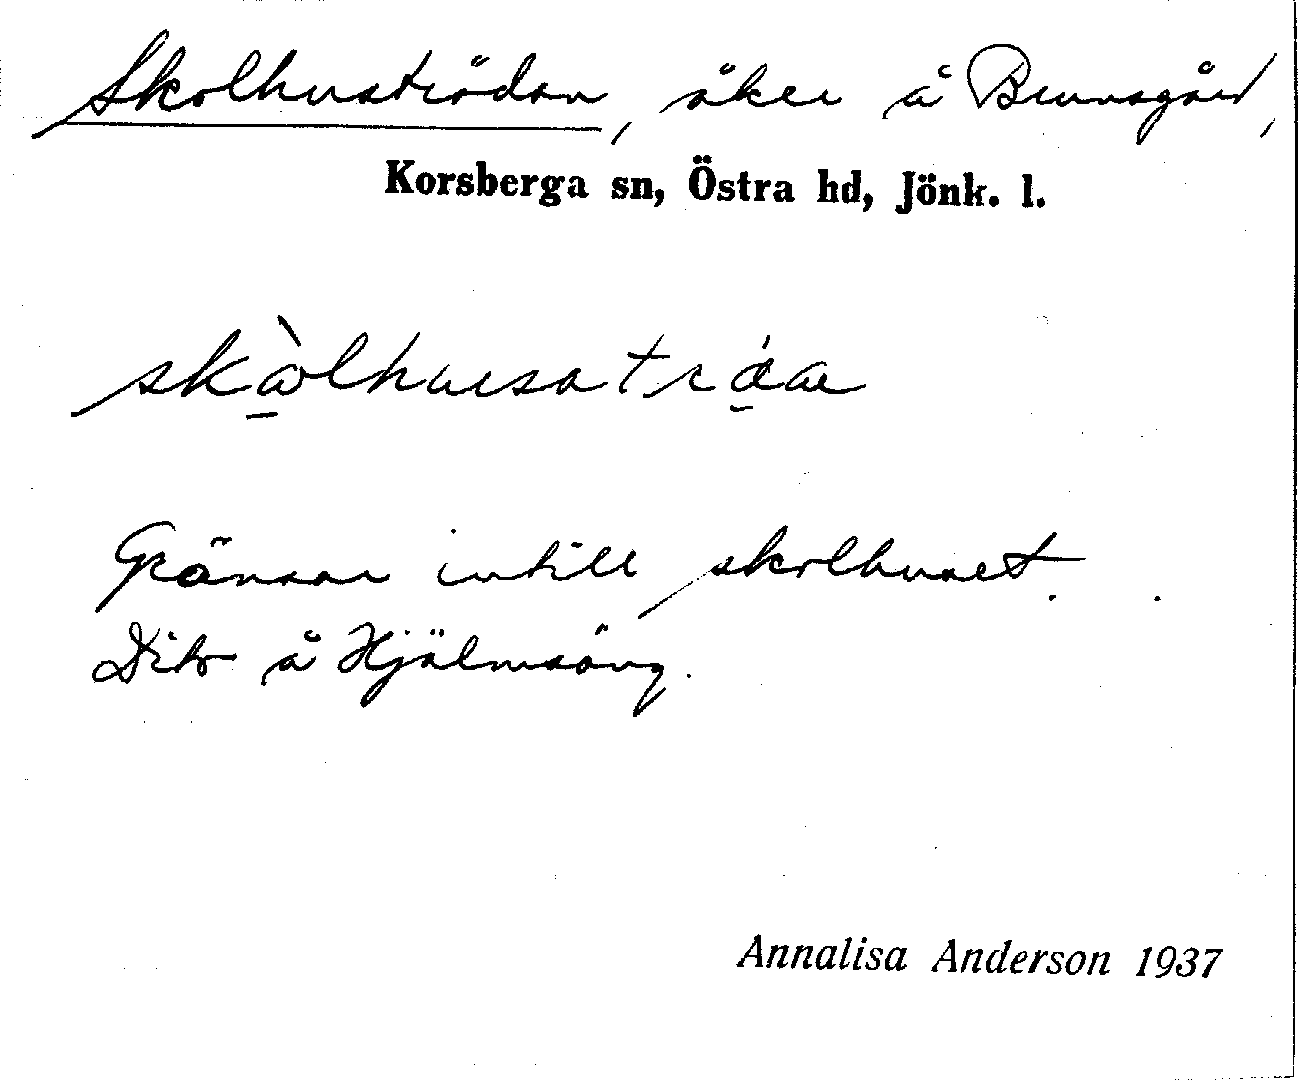 Skolhuströdan, åker å Brunsgård,
Korsberga sn, Östra hd, Jönk. l.
Gränsar intill skolhuset.
Dito å Hjälmsäng.
Annalisa Anderson 1937